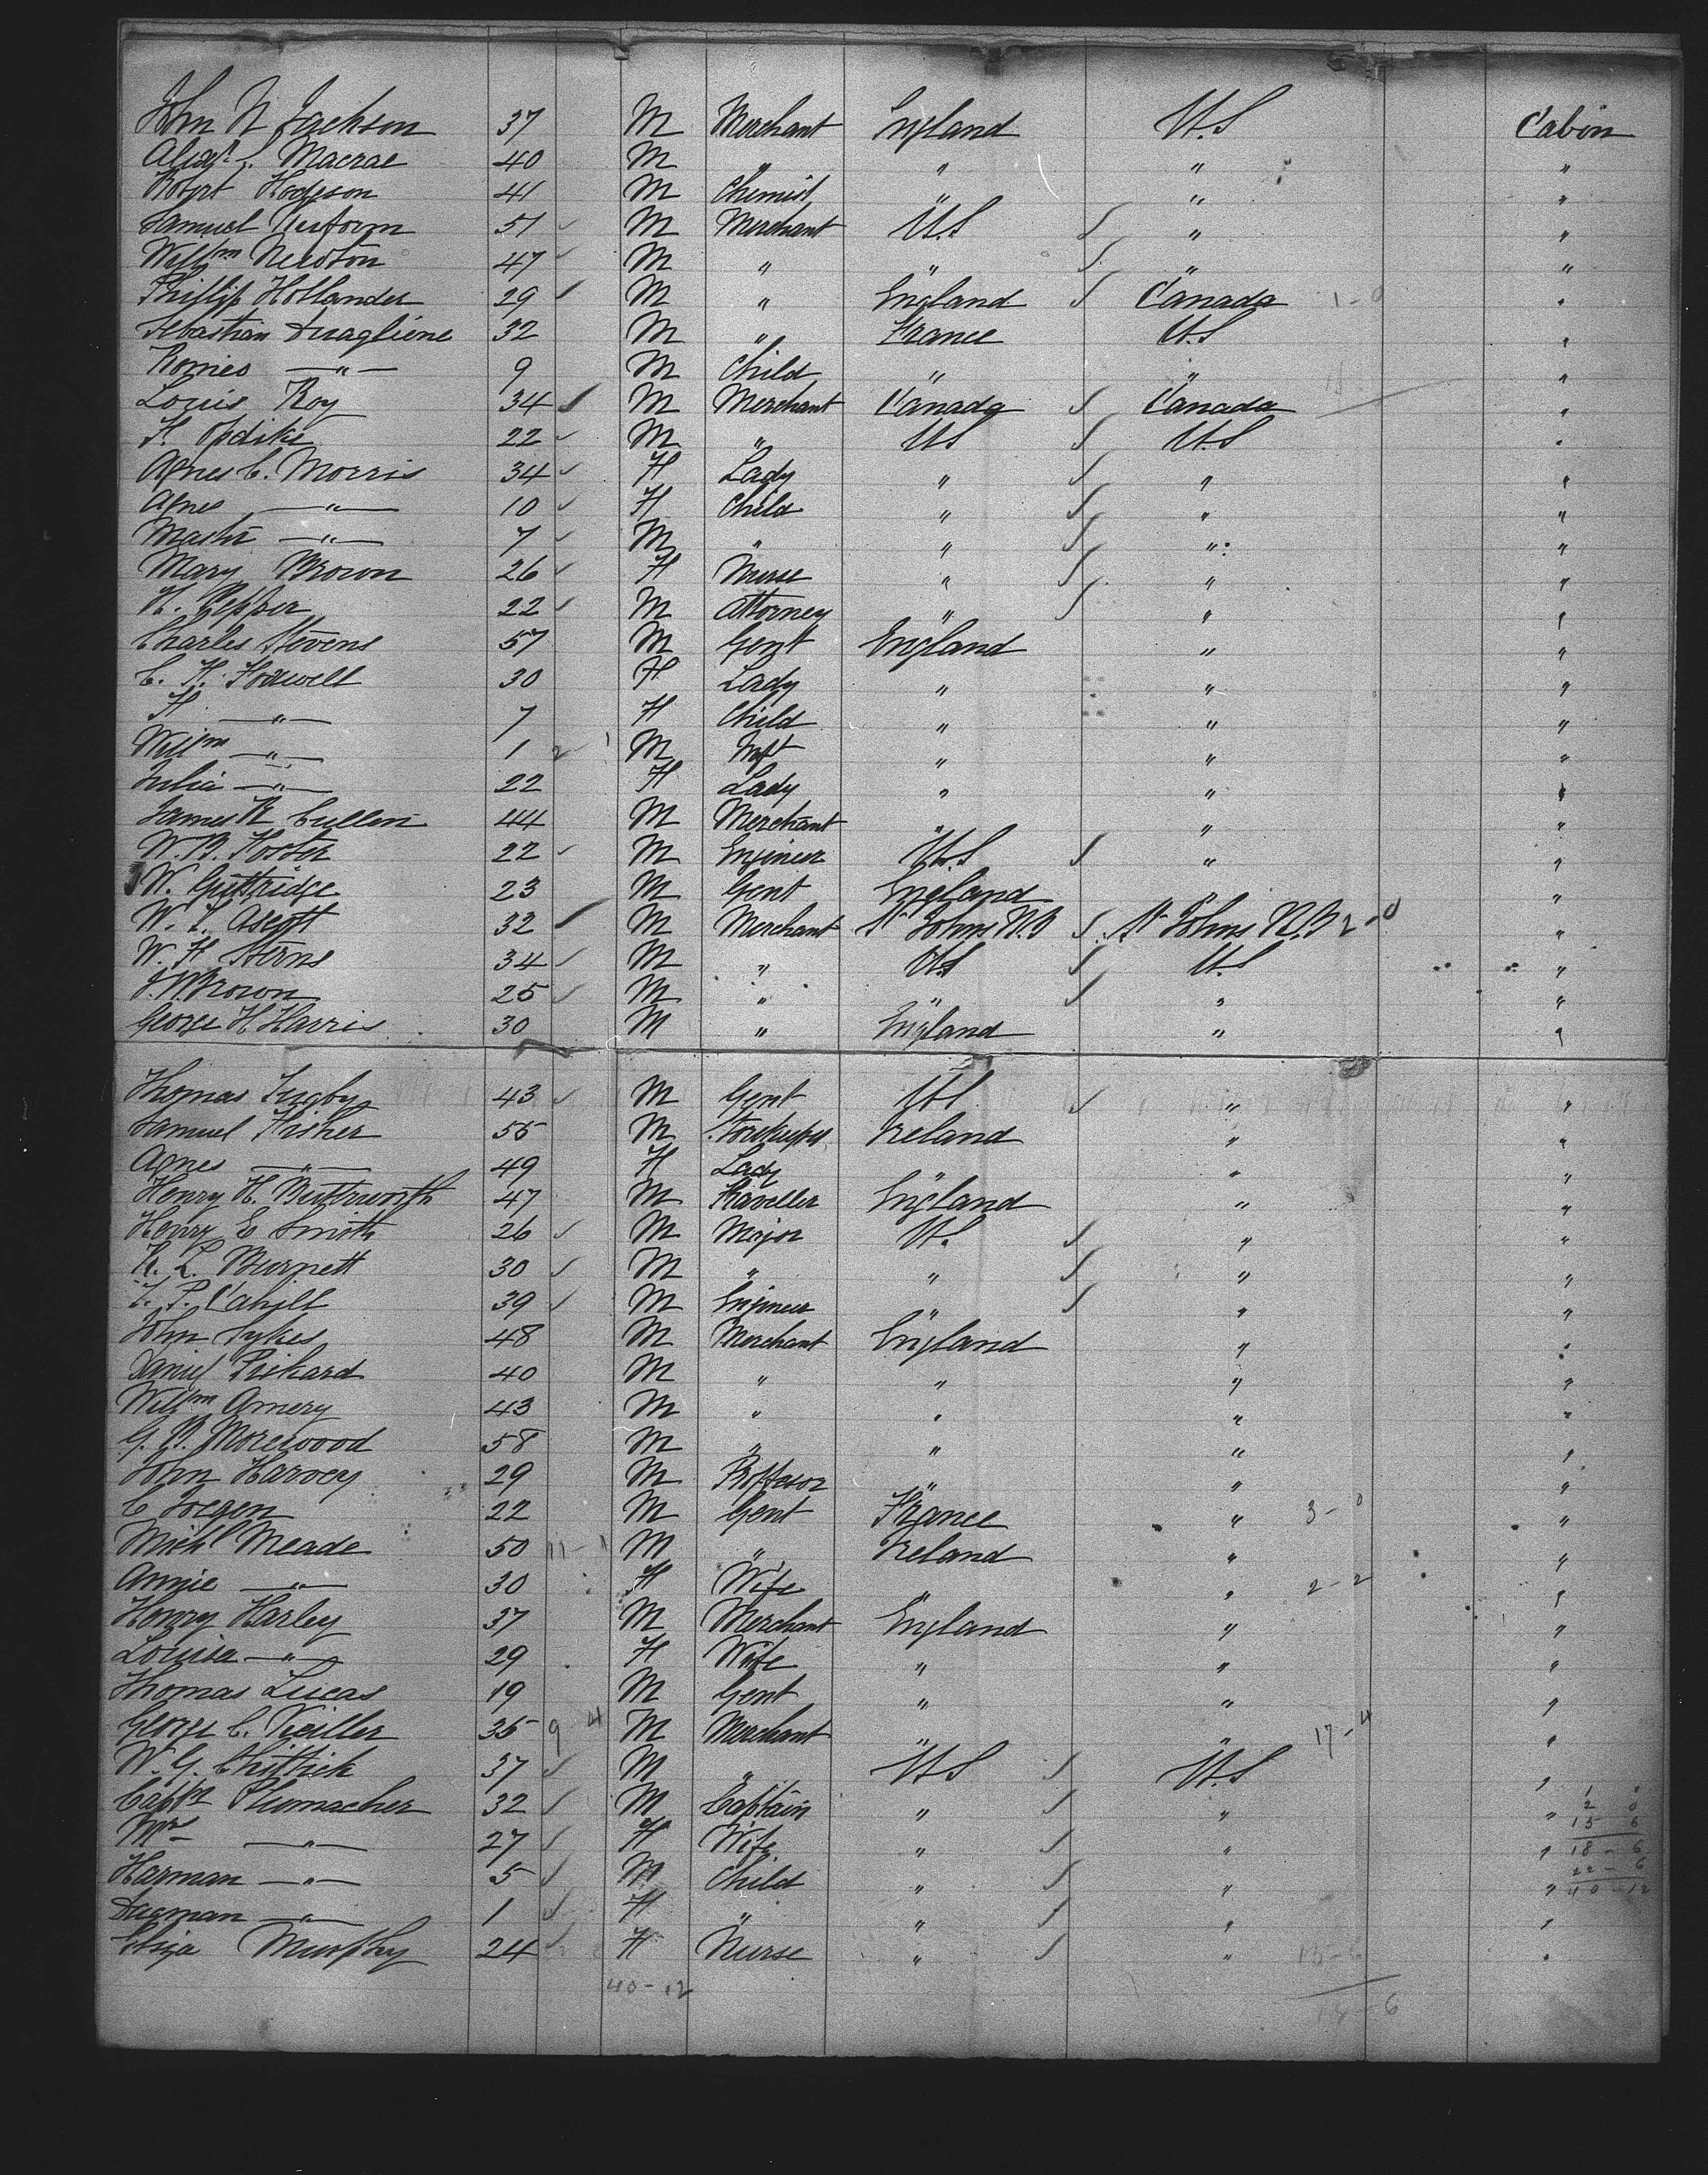 John N Jackson 37 M Merchant England U.S Cabin
Alexr S. Macrae 40 M " " " "
Robert Hodgson 41 M Chemist " " "
Samuel 51 M Merchant U.S " "
Willm Newton 47 M " " " "
Phillip Hollander 29 M " England Canada 1-0 "
Sebastian Quaglione 32 M " France U.S "
Romeo —"— 9 M Child " " "
Louis Roy 34 M Merchant Canada Canada "
F. Opdike 22 M " US U.S "
Agnes C. Morris 34 F Lady " " "
Agnes —"— 10 F Child " " "
Mastr —"— 7 M " " " "
Mary Brown 26 F Nurse " " "
H. Pepper 22 M Attorney " " "
Charles Stevens 57 M Gent England " "
C. F. Foxwell 30 F Lady " " "
F —"— 7 F Child " " "
Willm —"— 1 2-1 M Inft " " "
Julia —"— 22 F Lady " " "
James R Cullen 44 M Merchant " " "
W. B. Foster 22 M Engineer U.S " "
W. Guttridge 23 M Gent England " "
W. T. Ascott 32 M Merchant St Johns N.B St Johns N.B 2-0 "
W. H Sterns 34 M " US U.S "
J. Brown 25 M " " " "
George H Harris 30 M " England " "
Thomas 43 M Gent US " "
Samuel Fisher 55 M Storekeeper Ireland " "
Agnes —"— 49 F Lady " " "
Henry H. Butterworth 47 M Traveller England " "
Henry E Smith 26 M Major U. " "
H. L. Burnett 30 M " " " "
T. P. Cahill 39 M Engineer " " "
John Sykes 48 M Merchant England " "
Daniel Pickard 40 M " " " "
Willm Amery 43 M " " " "
G. B. Morewood 58 M " " " "
John Harvey 29 M Proffesor " " "
C 22 M Gent France " 3-0 "
Michl Meade 50 11-1 M " Ireland " "
Annie —"— 30 F Wife " " 2-2 "
Henry Harley 37 M Merchant England " "
Louisa —"— 29 F Wife " " "
Thomas Lucas 19 M Gent " " "
George C. 35 9-4 M Merchant " " 17-4 "
W. G. Chittick 37 M " US U.S "
Captn Plumacher 32 M Captain " " "
Mrs —"— 27 F Wife " " "
Harman —"— 5 M Child " " "
Dagman —"— 1 F " " " "
Eliza Murphy 24 F Nurse " " 15-6 "
40-12
18-6
1 0
2 0
15 6
18-6
22-6
40-12